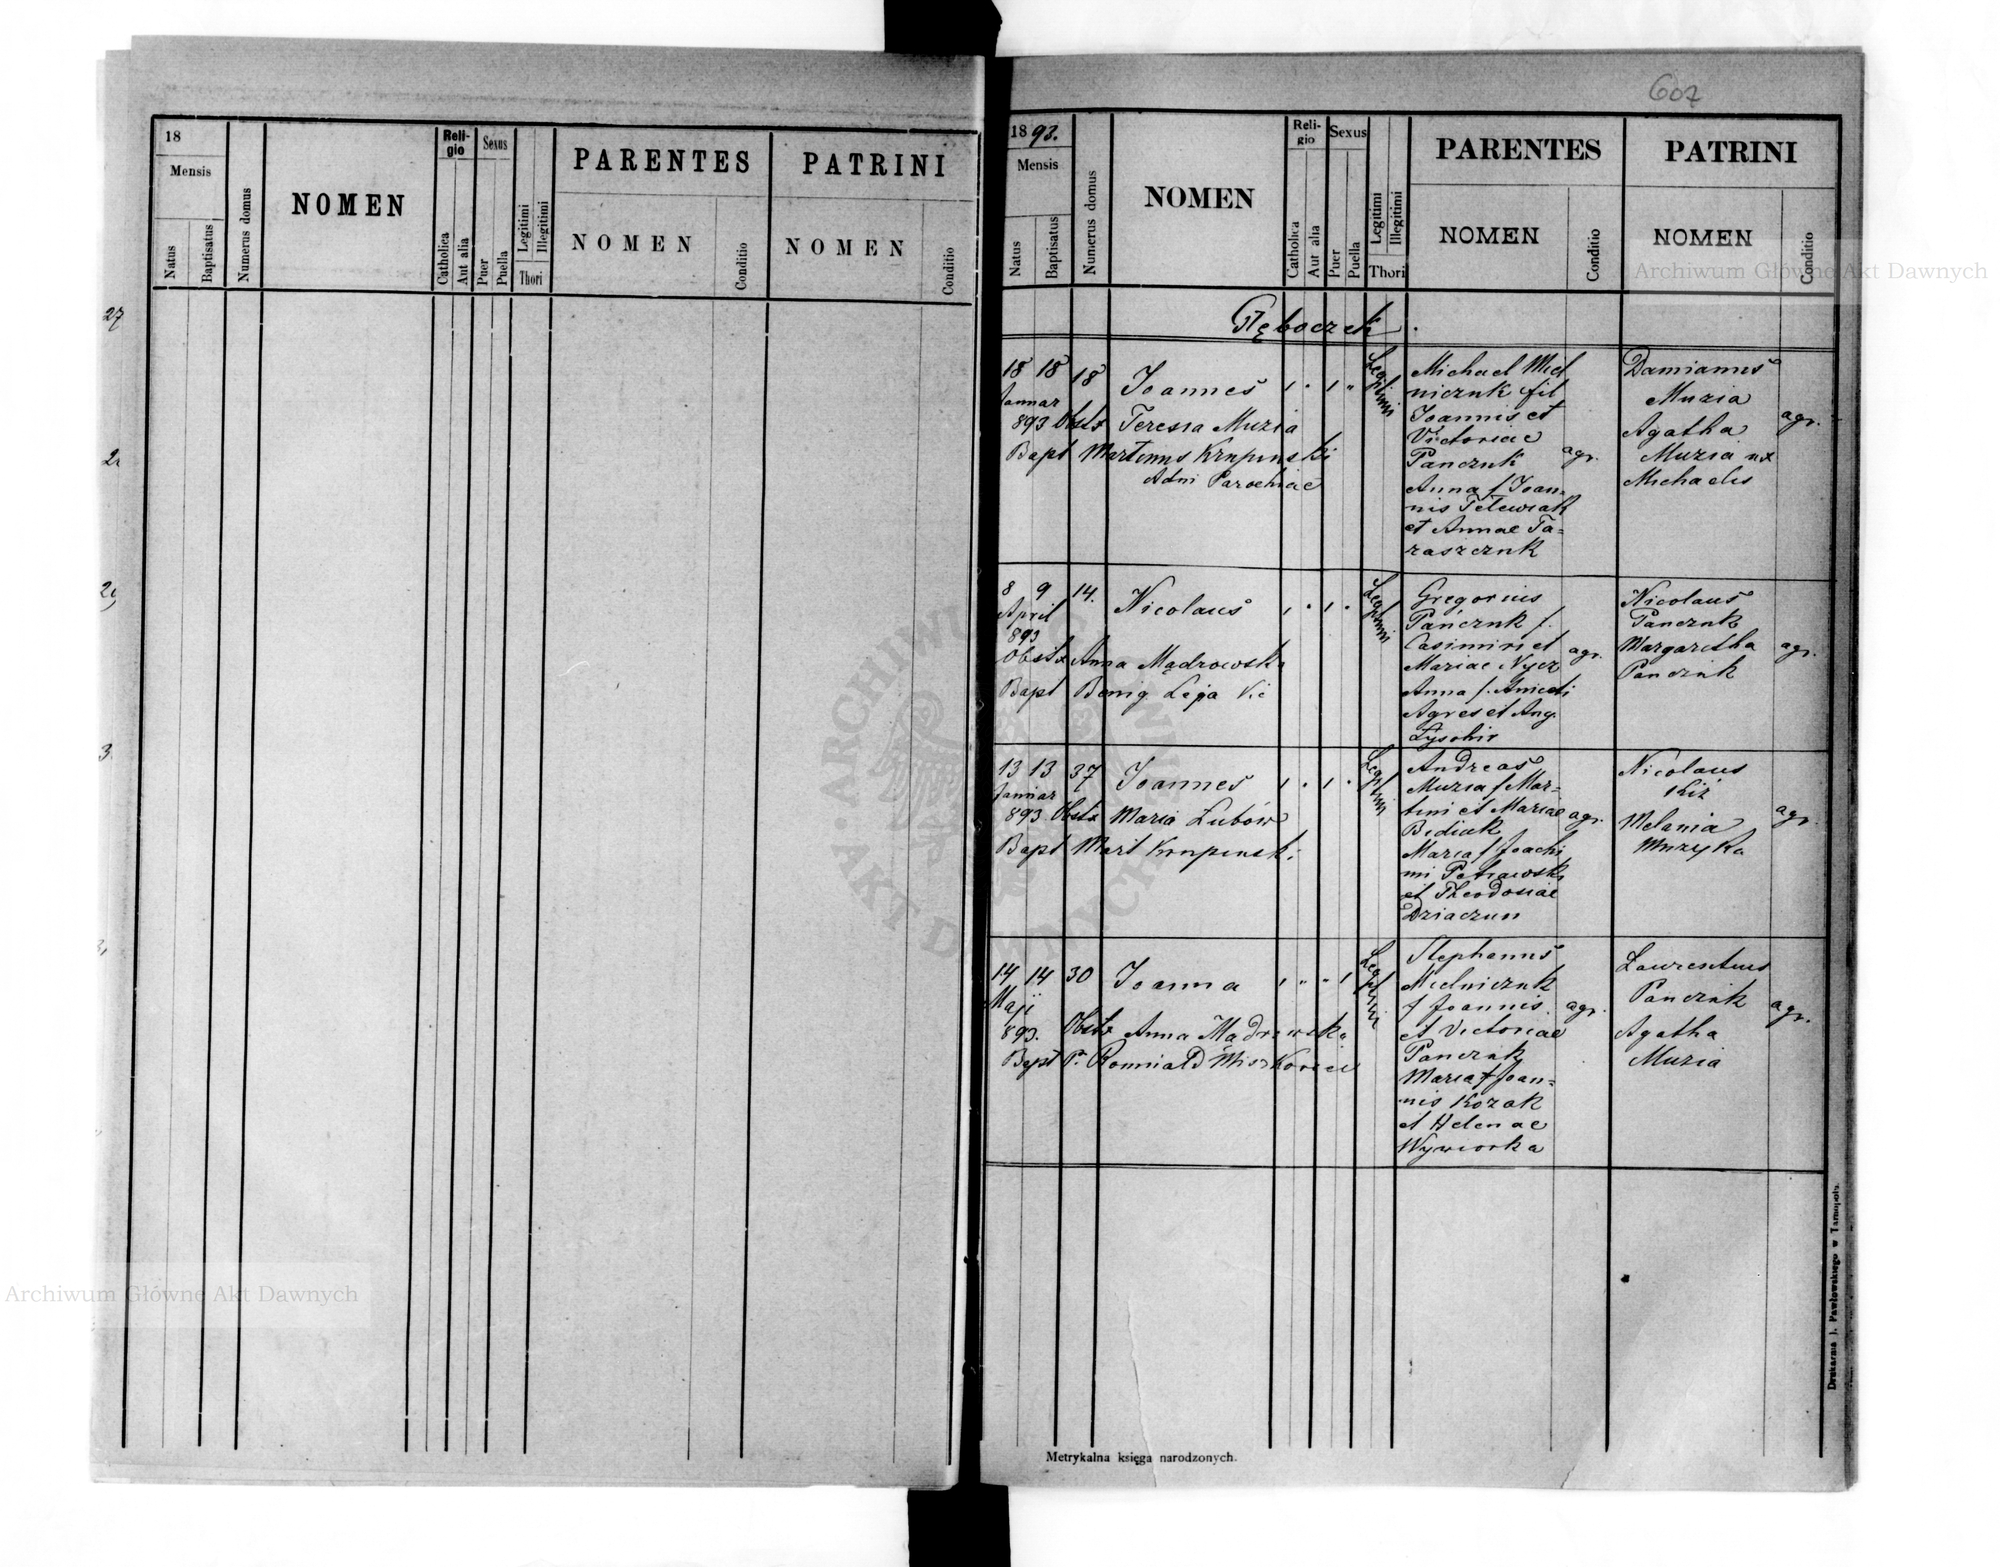 607
18
Mensis
Natus
Baptisatus
Numerus domus
NOMEN
Religio
Catholica
Aut alia
Sexus
Puer
Puella
Legitimi
Illegitimi
Thori
PARENTES
NOMEN
Conditio
PATRINI
NOMEN
Conditio
27
3
1893.
Mensis
Natus
Baptisatus
Numerus domus
NOMEN
Religio
Catholica
Aut alia
Sexus
Puer
Puella
Legitimi
Illegitimi
Thori
PARENTES
NOMEN
Conditio
PATRINI
NOMEN
Conditio
Archiwum Główne Akt Dawnych
Głęboczek
18 18 18 Joannes
Januar
893 Obstx Teresia Muzia
Bapt Martinus Krupinski
Adm Parochiae
Legitimi
Michael Miel
niczuk fil
Joannis et
Victoriae
Panczuk
Anna f Joan-
nis Telewiak
et Annae Ta-
raszczuk
agr.
Damianus
Muzia
Agatha
Muzia ux
Michaelis
agr.
8 9 14. Nicolaus
April
893
Obstx Anna Mądrowska
Bapt Benig Leja Vic
Legitimi
Gregorius
Pańczuk f.
Casimiri et
Mariae Nycz
Anna f. Aniceti
Agres et Ang.
agr.
Nicolaus
Panczuk
Margaretha
Panczuk
agr.
13 13 37 Joannes
Januar
893 Obstx Maria Zubów
Bapt Mart Krupinski
Legitimi
Andreas
Muzia f Mar-
tini et Mariae
Bediuk
Maria f Joachi
mi Petrawski
et Theodosiae
Dziaczun
agr.
Nicolaus
Kiz
Melania
Muzyka
agr.
14 14 30 Joanna
Maji
893. Obstx Anna Mądrowska
Bapt P. Romuald
Legitimi
Stephanus
Mielniczuk
f Joannis
et Victoriae
Panczuk
Maria f Joan-
nis Kozak
et Helenae
Wywiorka
agr.
Laurentius
Panczuk
Agatha
Muzia
agr.
ARCHIWUM GŁÓWNE AKT DAWNYCH
Archiwum Główne Akt Dawnych
Metrykalna księga narodzonych.
Drukarnia J. Pawłowskiego w Tarnopolu.